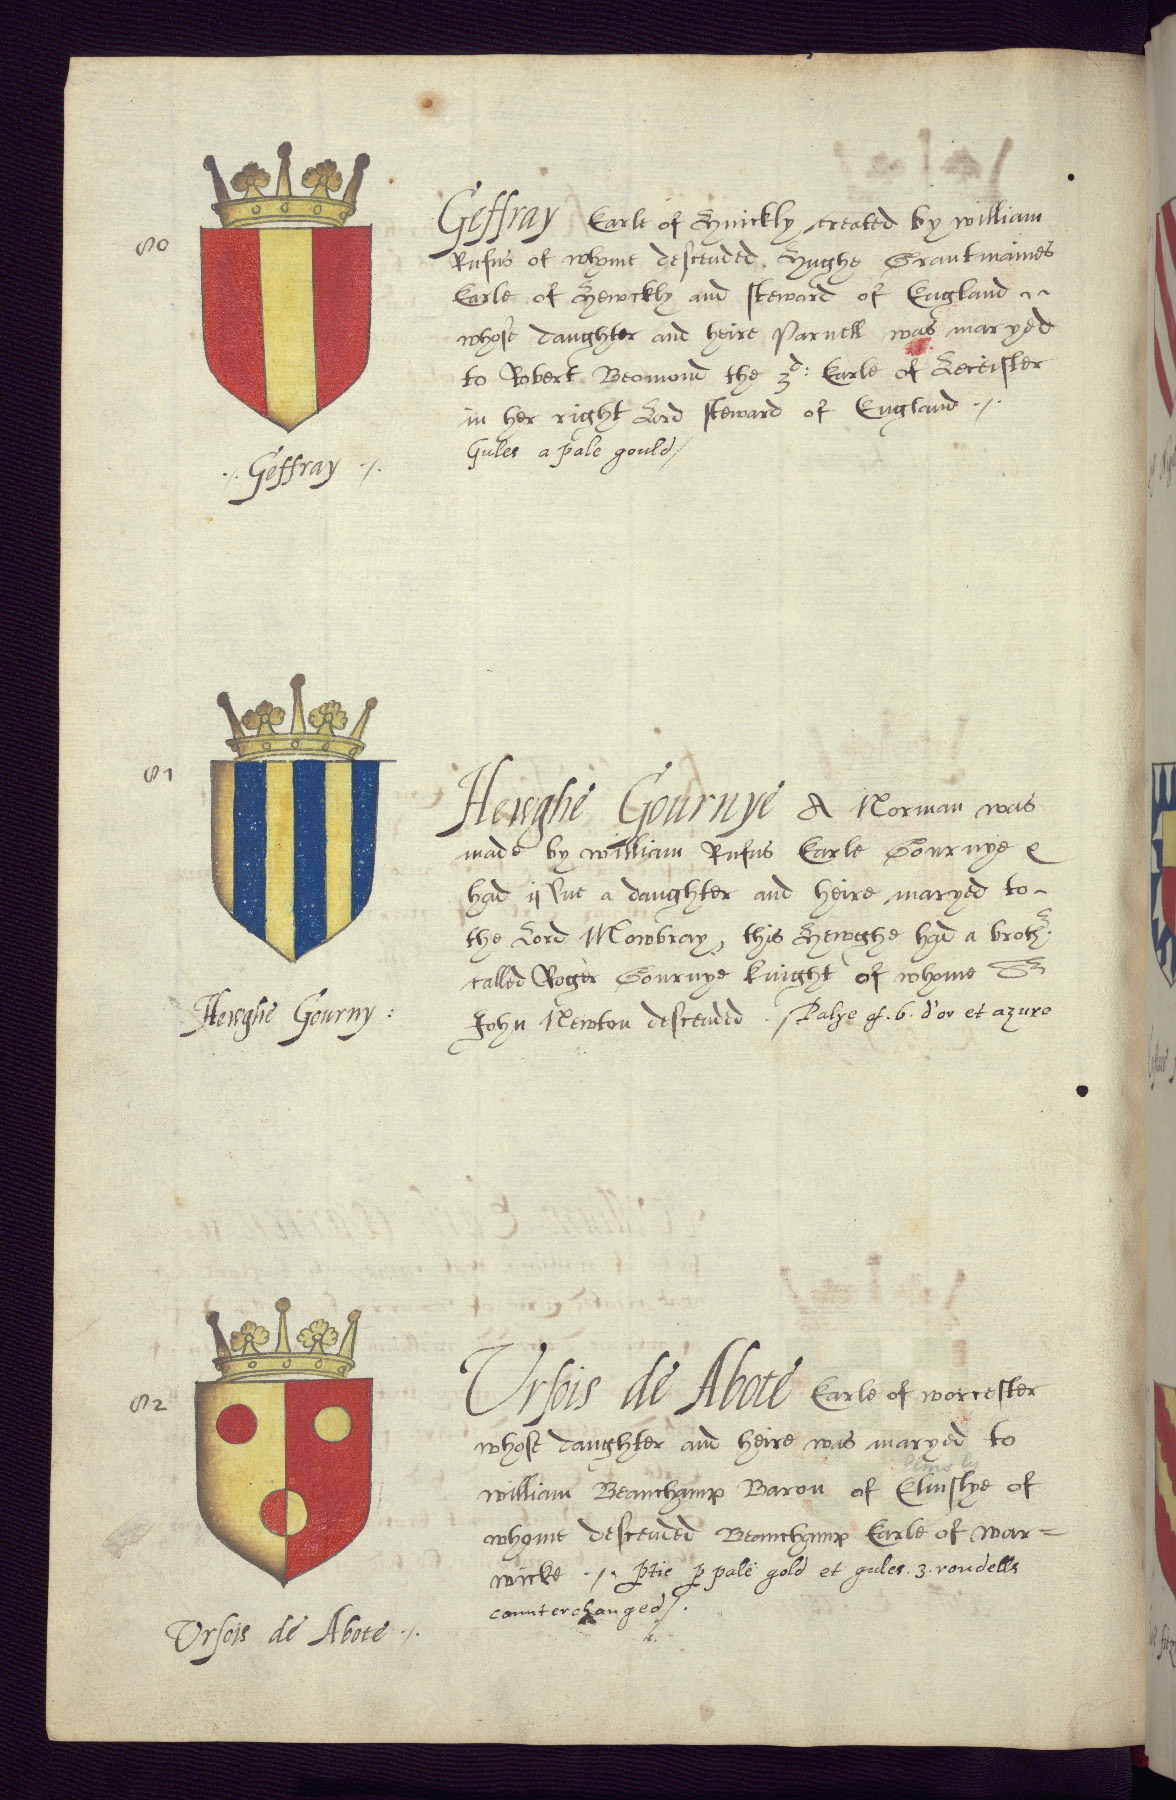 80
Geffray Earle of Hynickly created by william
Rufus of whome descended Hughe Grantmaines
Earle of Hewckly and steward of England
whose daughter and heire Parnell was maryed
to Robert Beomond the 3d: Earle of Leceister
in her right Lord steward of England ./.
Gules a pale gould/
./. Geffray ./.
81
Hewghe Gournye A Norman was
made by william Rufus Earle Gournye &
had issue a daughter and heire maryed to-
the Lord Mowbray, this Hewghe had a broth:
called Roger Gournye knight of whome Sr
John Newton descended ./ Palye of .6. d'or et azure
Hewghe Gourny :
82
Ursois de Abote Earle of worcester
whose daughter and heire was maryed to
Elmsly
william Beauchamp Baron of Elmslye of
whome descended Beauchamp Earle of war=
wicke ./. ptie p pale gold et gules .3. rondells
counterchanged/.
Ursois de Abote ./.